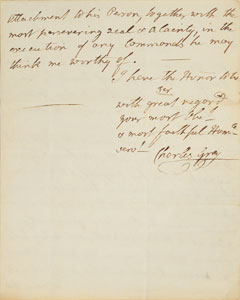 Attachment to his Person, together with the
most persevering zeal & Alacrity, in the
execution of any Commands he may
think me worthy of.
I have the Honor to be
Sir
with great regard
your most Obt
& most faithful Humle
serv!
Charles Gray